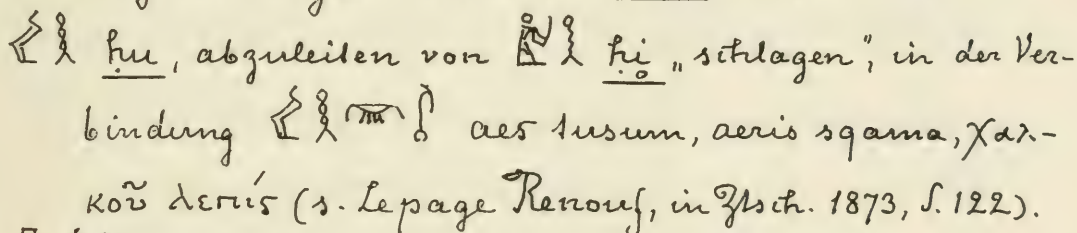 ḥu, abzuleiten von ḥi̥ „schlagen", in der Ver-
bindung aes susum, aeris sqama, χαλ-
κοῦ λεπίς (s. Lepage Renouf, in Ztsch. 1873, S. 122).